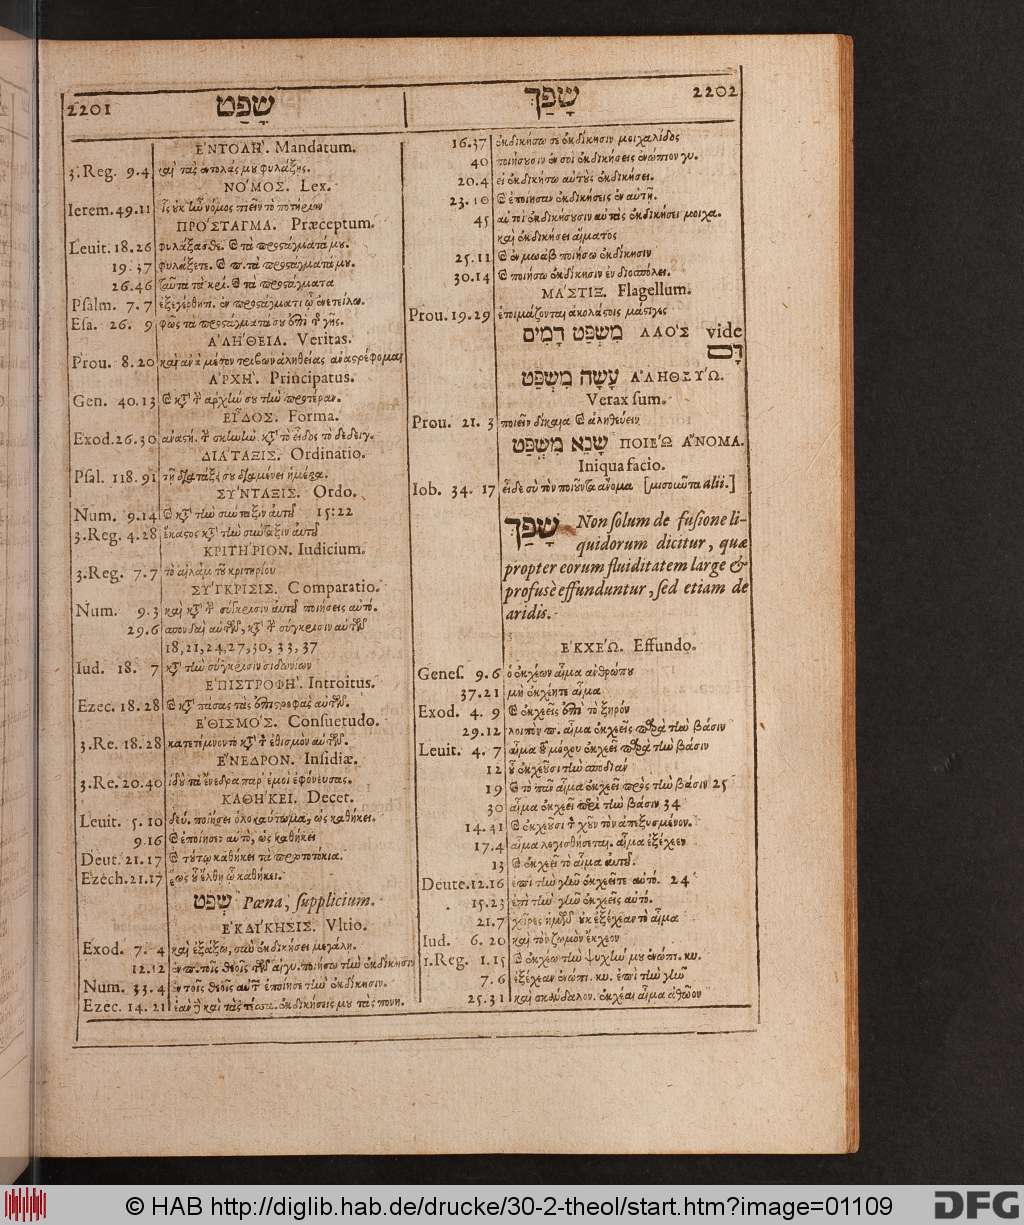 2201 שָׁפַט
ἘΝΤΟΛΗ'. Mandatum.
3. Reg. 9.4 καὶ τὰς ἐντολάς μου φυλάξῃς.
ΝΟ'ΜΟΣ. Lex.
Ierem. 49.11
ΠΡΟ'ΣΤΑΓΜΑ. Præceptum.
Leuit. 18.26 φυλάξασθε. τὰ προστάγματά μου.
19.37 φυλάξετε. τὰ προστάγματά μου.
26.46 ταῦτα τὰ κρί. τὰ προστάγματα
Psalm. 7.7 ἐξεγέρθητι. ἐν προστάγματι ᾧ ἐνετείλω.
Esa. 26. 9 φῶς τὰ προστάγματά σου ἐπὶ τῆς γῆς.
ἈΛΗ'ΘΕΙΑ. Veritas.
Prou. 8.20 καὶ ἀνὰ μέσον τρίβων ἀληθείας ἀναστρέφομαι
ἈΡΧΗ'. Principatus.
Gen. 40.13 κατὰ τὴν ἀρχήν σου τὴν προτέραν.
ΕἾΔΟΣ. Forma.
Exod. 26.30 τὸ εἶδος τὸ δεδειγ.
ΔΙΑ'ΤΑΞΙΣ. Ordinatio.
Psal. 118.91 τῇ διατάξει σου διαμένει ἡμέρα.
ΣΥ'ΝΤΑΞΙΣ. Ordo.
Num. 9.14 κατὰ τὴν σύνταξιν αὐτοῦ 15:22
3. Reg. 4.28 ἕκαστος κατὰ τὴν σύνταξιν αὐτοῦ
ΚΡΙΤΗ'ΡΙΟΝ. Iudicium.
3. Reg. 7.7 τὸ αἰλὰμ τοῦ κριτηρίου
ΣΥ'ΓΚΡΙΣΙΣ. Comparatio.
Num. 9.3 καὶ κατὰ τὴν σύγκρισιν αὐτοῦ ποιήσεις αὐτό.
29.6 σπονδαὶ αὐτῶν, κατὰ τὴν σύγκρισιν αὐτῶν
18, 21, 24, 27, 30, 33, 37
Iud. 18. 7 κατὰ τὴν σύγκρισιν σιδωνίων
ἘΠΙΣΤΡΟΦΗ'. Introitus.
Ezec. 18.28 κατὰ πάσας τὰς ἐπιστροφὰς αὐτῶν.
ἘΘΙΣΜΟ'Σ. Consuetudo.
3. Re. 18.28 κατετέμνοντο κατὰ τὸν ἐθισμὸν αὐτῶν.
ἜΝΕΔΡΟΝ. Insidiæ.
3. Re. 20.40 παρ' ἐμοὶ ἐφόνευσας.
ΚΑΘΗ'ΚΕΙ. Decet.
Leuit. 5.10 δεύ. ποιήσει ὁλοκαύτωμα, ὡς καθήκει.
9.16 ἐποίησεν αὐτὸ, ὡς καθήκει
Deut. 21.17 τούτῳ καθήκει τὰ πρωτοτόκια.
Ezech. 21.17 ἕως οὗ ἔλθῃ ᾧ καθήκει.
שְׁפֹט Pœna, supplicium.
ἘΚΔΙ'ΚΗΣΙΣ. Vltio.
Exod. 7. 4 καὶ ἐξάξω, σὺν ἐκδικήσει μεγάλῃ.
12.12 ποιήσω τὴν ἐκδίκησιν
Num. 33.4 ἐν τοῖς θεοῖς αὐτῶν ἐποίησε τὴν ἐκδίκησιν.
Ezec. 14.21 ἐὰν δὲ καὶ τὰς τέσσα. ἐκδικήσεις μου τὰς πονη.
שָׁפַךְ 2202
16.37 ἐκδικήσω σε ἐκδίκησιν μοιχαλίδος
40 ποιήσουσιν ἐν σοὶ ἐκδικήσεις ἐνώπιον γυ.
20.4 εἰ ἐκδικήσω αὐτοὺς ἐκδικήσει.
23.10 ἐποίησαν ἐκδικήσεις ἐν αὐτῇ.
45 αὐτοὶ ἐκδικήσουσιν αὐτὰς ἐκδικήσει μοιχα.
καὶ ἐκδικήσει αἵματος
25.11 ἐν μωὰβ ποιήσω ἐκδίκησιν
30.14 ποιήσω ἐκδίκησιν ἐν διοσπόλει.
ΜΑ'ΣΤΙΞ. Flagellum.
Prou. 19.29 ἑτοιμάζονται ἀκολάστοις μάστιγες
מִשְׁפַּט דָּמִים ΛΑΟ'Σ vide
דָּם
עָשָׂה מִשְׁפַּט ἈΛΗΘΕΥ'Ω.
Verax sum.
Prou. 21. 3 ποιεῖν δίκαια ἀληθεύειν
שָׂנֵא מִשְׁפָּט ΠΟΙΕ'Ω ἌΝΟΜΑ.
Iniqua facio.
Iob. 34. 17 ἄνομα [μισοῦντα alii.]
שָׁפַךְ Non solum de fusione li-
quidorum dicitur, quæ
propter eorum fluiditatem large &
profusè effunduntur, sed etiam de
aridis.
ἘΚΧΕ'Ω. Effundo.
Genes. 9.6 ὁ ἐκχέων αἷμα ἀνθρώπου
37.21 μὴ ἐκχέητε αἷμα
Exod. 4. 9 ἐκχεεῖς ἐπὶ τὸ ξηρόν
29.12 λοιπὸν π. αἷμα ἐκχεεῖς παρὰ τὴν βάσιν
Leuit. 4. 7 αἷμα τοῦ μόσχου ἐκχεεῖ παρὰ τὴν βάσιν
12 οὗ ἐκχεοῦσι τὴν σποδιάν
19 τὸ πᾶν αἷμα ἐκχεεῖ πρὸς τὴν βάσιν 25
30 αἷμα ἐκχεεῖ παρὰ τὴν βάσιν 34
14.41 ἐκχεοῦσι τὸν χοῦν τὸν ἀπεξυσμένον.
17.4 αἷμα λογισθήσεται. αἷμα ἐξέχεεν
13 ἐκχεεῖ τὸ αἷμα αὐτοῦ.
Deute. 12.16 ἐπὶ τὴν γῆν ἐκχεεῖτε αὐτό. 24
15.23 ἐπὶ τὴν γῆν ἐκχεεῖς αὐτό.
21.7 χεῖρες ἡμῶν οὐκ ἐξέχεαν τὸ αἷμα
Iud. 6.20 καὶ τὸν ζωμὸν ἔκχεον
1. Reg. 1.15 ἐκχέω τὴν ψυχήν μου ἐνώπι. κυ.
7.6 ἐξέχεαν ἐνώπι. κυ. ἐπὶ τὴν γῆν
25.31 καὶ σκάνδαλον. ἐκχέαι αἷμα ἀθῷον
© HAB http://diglib.hab.de/drucke/30-2-theol/start.htm?image=01109 DFG